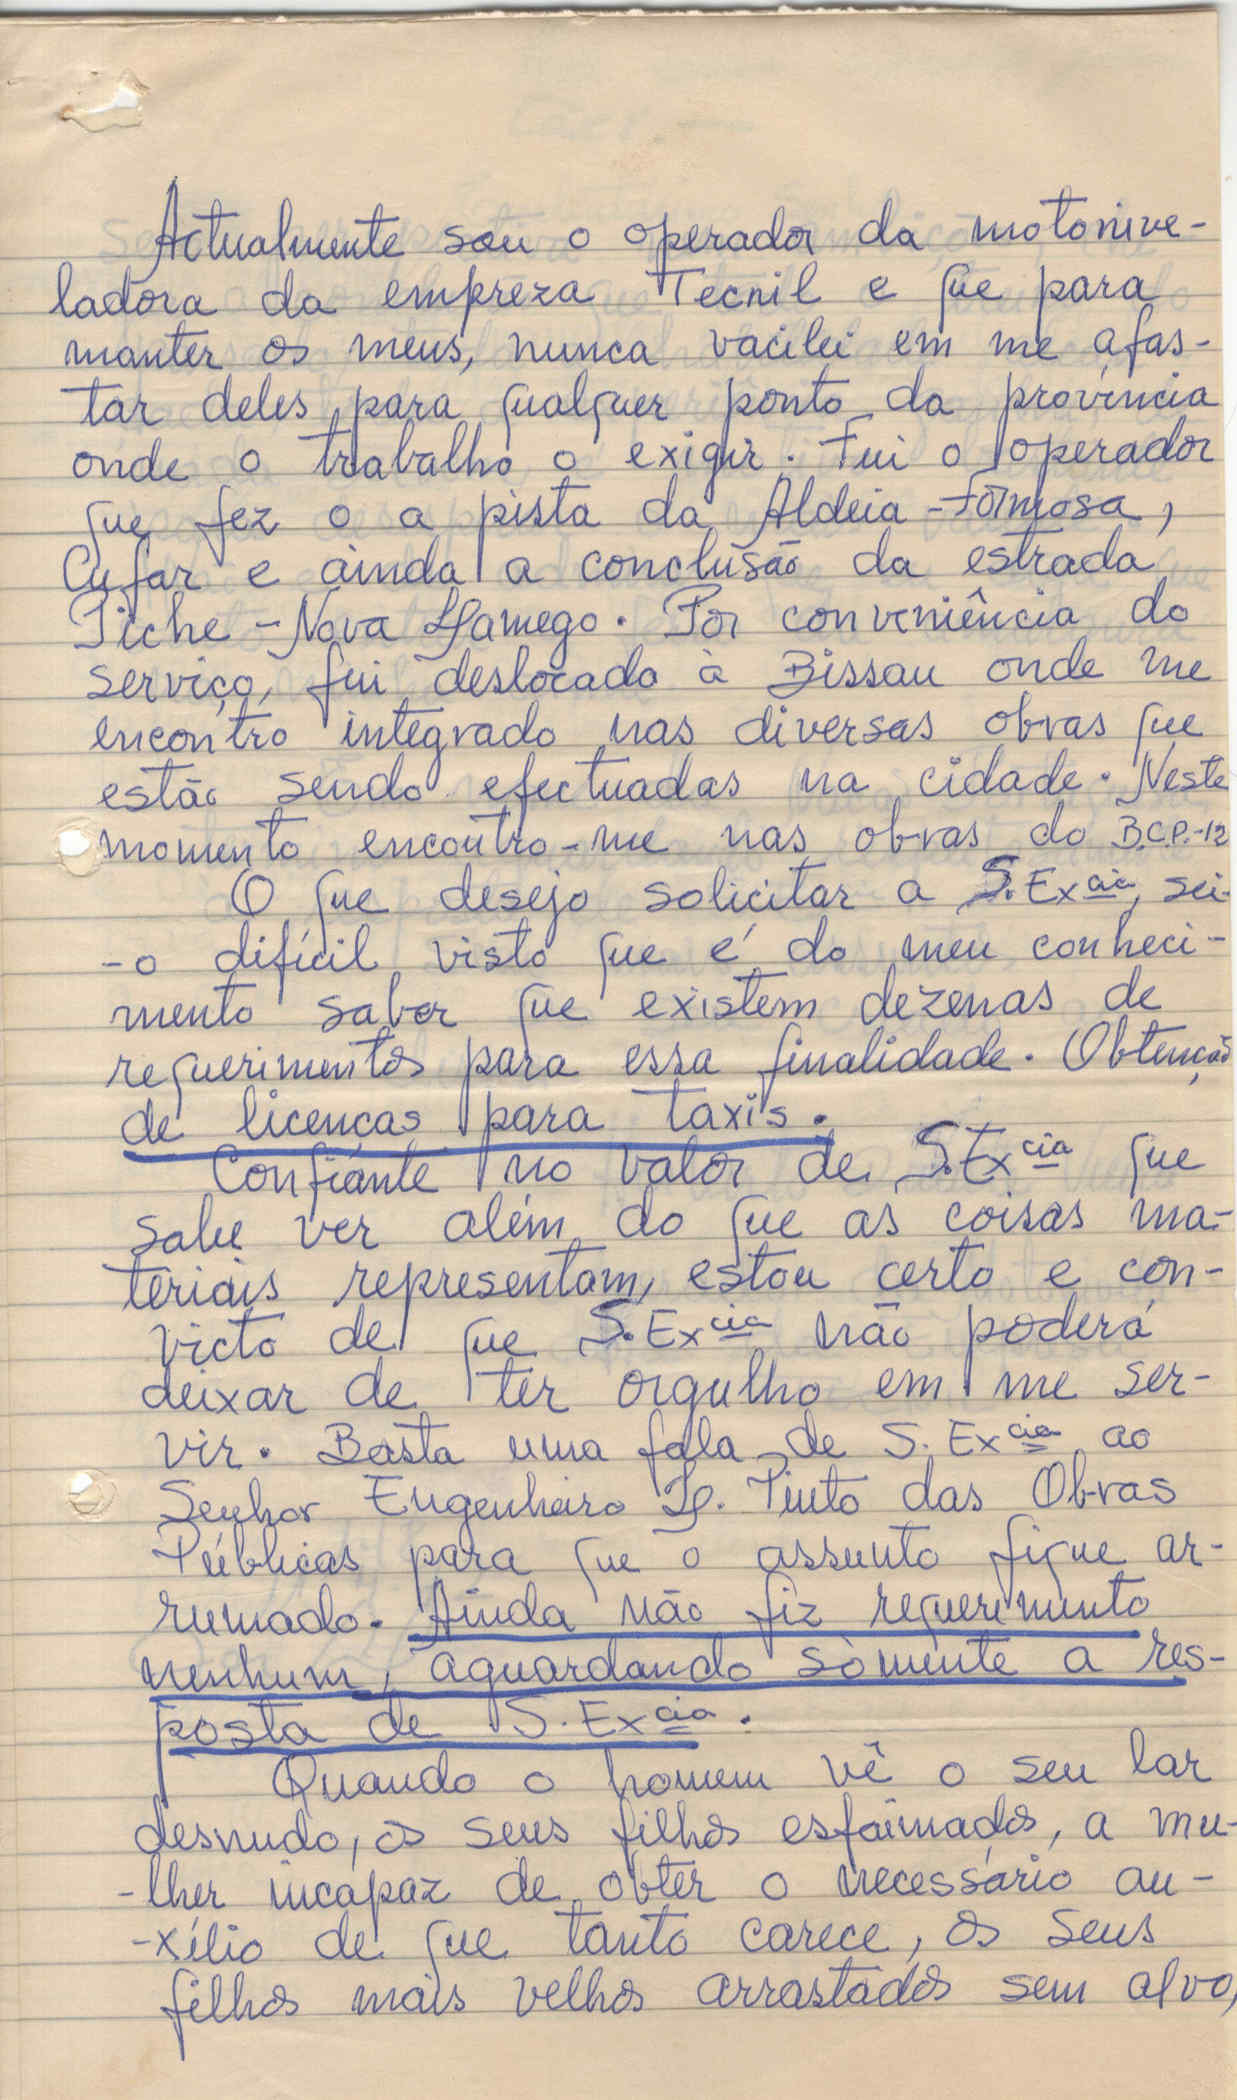 Actualmente sou o operador da motonive-
ladora da empreza Tecnil e que para
manter os meus, nunca vacilei em me afas-
tar deles para qualquer ponto da província
onde o trabalho o exigir. Fui o operador
que fez o a pista da Aldeia-Formosa,
Cufar e ainda a conclusão da estrada
Piche-Nova Lamego. Por conveniência do
serviço, fui deslocado à Bissau onde me
encontro integrado nas diversas obras que
estão sendo efectuadas na cidade. Neste
momento encontro-me nas obras do B.C.P.-12
O que desejo solicitar a S.Excia, sei-
-o difícil visto que é do meu conheci-
mento saber que existem dezenas de
requerimentos para essa finalidade. Obtenção
de licenças para taxis.
Confiante no valor de S.Excia que
sabe ver além do que as coisas ma-
teriais representam, estou certo e con-
victo de que S.Excia não poderá
deixar de ter orgulho em me ser-
vir. Basta uma fala de S. Excia ao
Senhor Engenheiro L. Pinto das Obras
Públicas para que o assunto fique ar-
rumado. Ainda não fiz requerimento
nenhum, aguardando sòmente a res-
posta de S. Excia.
Quando o homem vê o seu lar
desnudo, os seus filhos esfaimados, a mu-
-lher incapaz de obter o necessário au-
-xílio de que tanto carece, os seus
filhos mais velhos arrastados sem alvo,